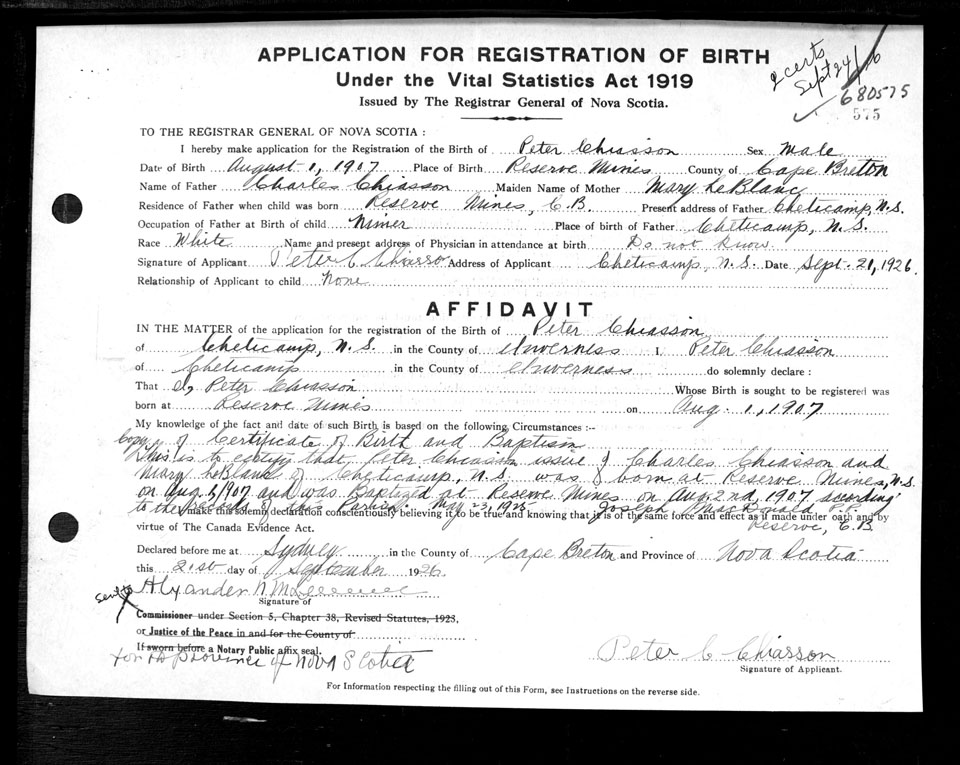 APPLICATION FOR REGISTRATION OF BIRTH
Under the Vital Statistics Act 1919
Issued by The Registrar General of Nova Scotia.
2 certs
Sept 24/
680575
575
TO THE REGISTRAR GENERAL OF NOVA SCOTIA :
I hereby make application for the Registration of the Birth of Peter Chiasson Sex Male
Date of Birth August 1, 1907 Place of Birth Reserve Mines County of Cape Breton
Name of Father Charles Chiasson Maiden Name of Mother Mary LeBlanc
Residence of Father when child was born Reserve Mines, C.B. Present address of Father Cheticamp, N.S.
Occupation of Father at Birth of child Nimer Place of birth of Father Cheticamp, N.S.
Race White Name and present address of Physician in attendance at birth Do not know
Signature of Applicant Peter C Chiasso Address of Applicant Cheticamp, N.S. Date Sept. 21, 1926.
Relationship of Applicant to child None
AFFIDAVIT
IN THE MATTER of the application for the registration of the Birth of Peter Chiasson
of Cheticamp, N.S. in the County of Inverness I Peter Chiasson
of Cheticamp in the County of Inverness do solemnly declare :
That I, Peter Chiasson Whose Birth is sought to be registered was
born at Reserve Mines on Aug. 1, 1907
My knowledge of the fact and date of such Birth is based on the following Circumstances :--
Copy of Certificate of Birth and Baptism
This is to certify that Peter Chiasson issue of Charles Chiasson and
Mary LeBlanc of Cheticamp, N.S. was born at Reserve Mines, N.S.
on Aug. 1, 1907 and was Baptized at Reserve Mines on Aug. 2nd, 1907 according
to the Records of this Parish. May 23, 1925 Joseph MacDonald P.P.
Reserve, C.B.
I make this solemn declaration conscientiously believing it to be true and knowing that it is of the same force and effect as if made under oath and by
virtue of The Canada Evidence Act.
Declared before me at Sydney in the County of Cape Breton and Province of Nova Scotia
this 21st day of September 1926.
Alexander N
Signature of
Commissioner under Section 5, Chapter 38, Revised Statutes, 1923,
or Justice of the Peace in and for the County of
If sworn before a Notary Public affix seal.
for the province of Nova Scotia
Peter C Chiasson
Signature of Applicant.
For Information respecting the filling out of this Form, see Instructions on the reverse side.